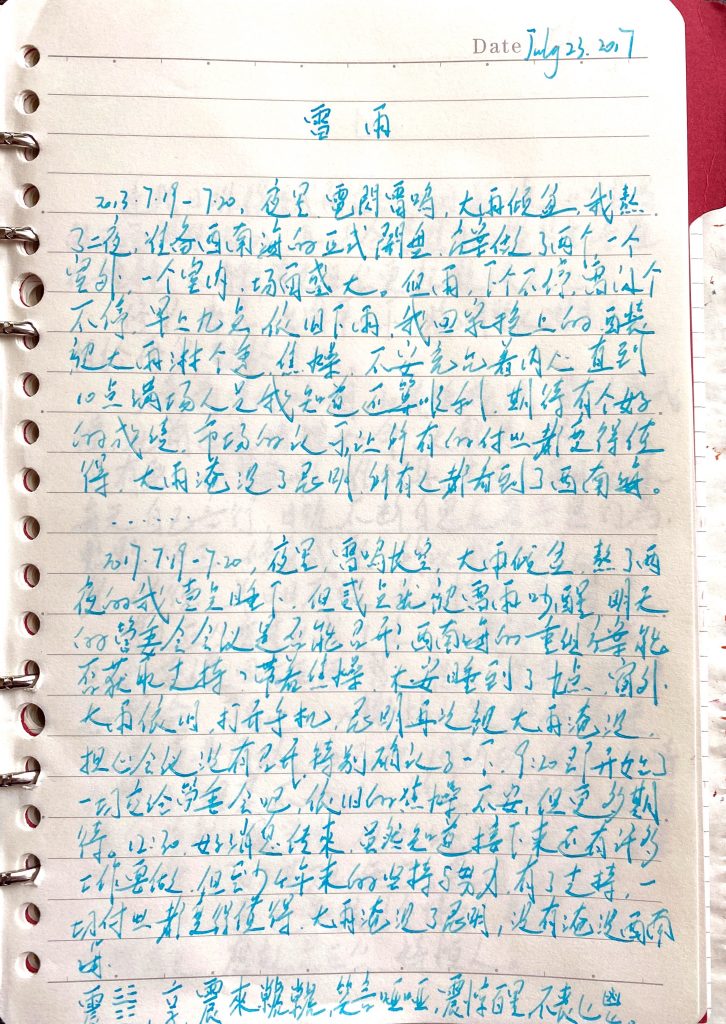 Date July 23. 2017
雷雨
2013.7.19-7.20, 夜里, 電閃雷鳴, 大雨傾盆, 我熬
了二夜, 准备西南海的正式開盘, 方案做了两个一个
室外, 一个室内, 场面盛大。但雨, 下个不停, 雷
不停, 早上九点依旧下雨, 我回家换上的西装
被大雨淋个透, 焦燥, 不安充斥着内心, 直到
10点满场人, 我知道还算顺利, 期待有个好
的成绩, 市场的认可让所有的付出都变得值
得, 大雨淹没了昆明, 所有人都看到了西南海。
......
2017.7.19-7.20, 夜里, 雷鳴长空, 大雨倾盆, 熬了两
夜的我壹点睡下, 但贰点就被雷雨吵醒, 明天
的管委会会议是否能召开? 西南海的重组方案能
否获取支持? 带着焦燥, 不安睡到了九点, 窗外
大雨依旧, 打开手机, 昆明再次被大雨淹没,
担心会议没有召开, 特别确认了一下, 9:20即开始了
一切交给管委会吧, 依旧的焦燥, 不安, 但更多期
待。12:30, 好消息传来, 虽然知道接下来还有许多
工作要做, 但至少年来的坚持与努力, 有了支持, 一
切付出都变得值得, 大雨淹没了昆明, 没有淹没西南
海.
震䷲, 亨, 震來虩虩, 笑言哑哑, 震惊百里, 不丧匕鬯。